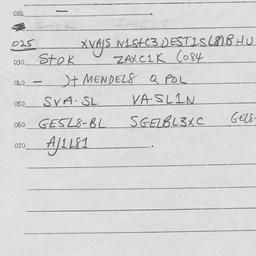 025 XVAJS N1StC3 DEST1SL81BHU
030 StOK ZAXC1K (084
040 — )+ MENDEL8 Q POL
050 SVA·SL VA·SL1N
060 GE5L8-BL SGELBL3XC GEL8-
070 AJ1L81